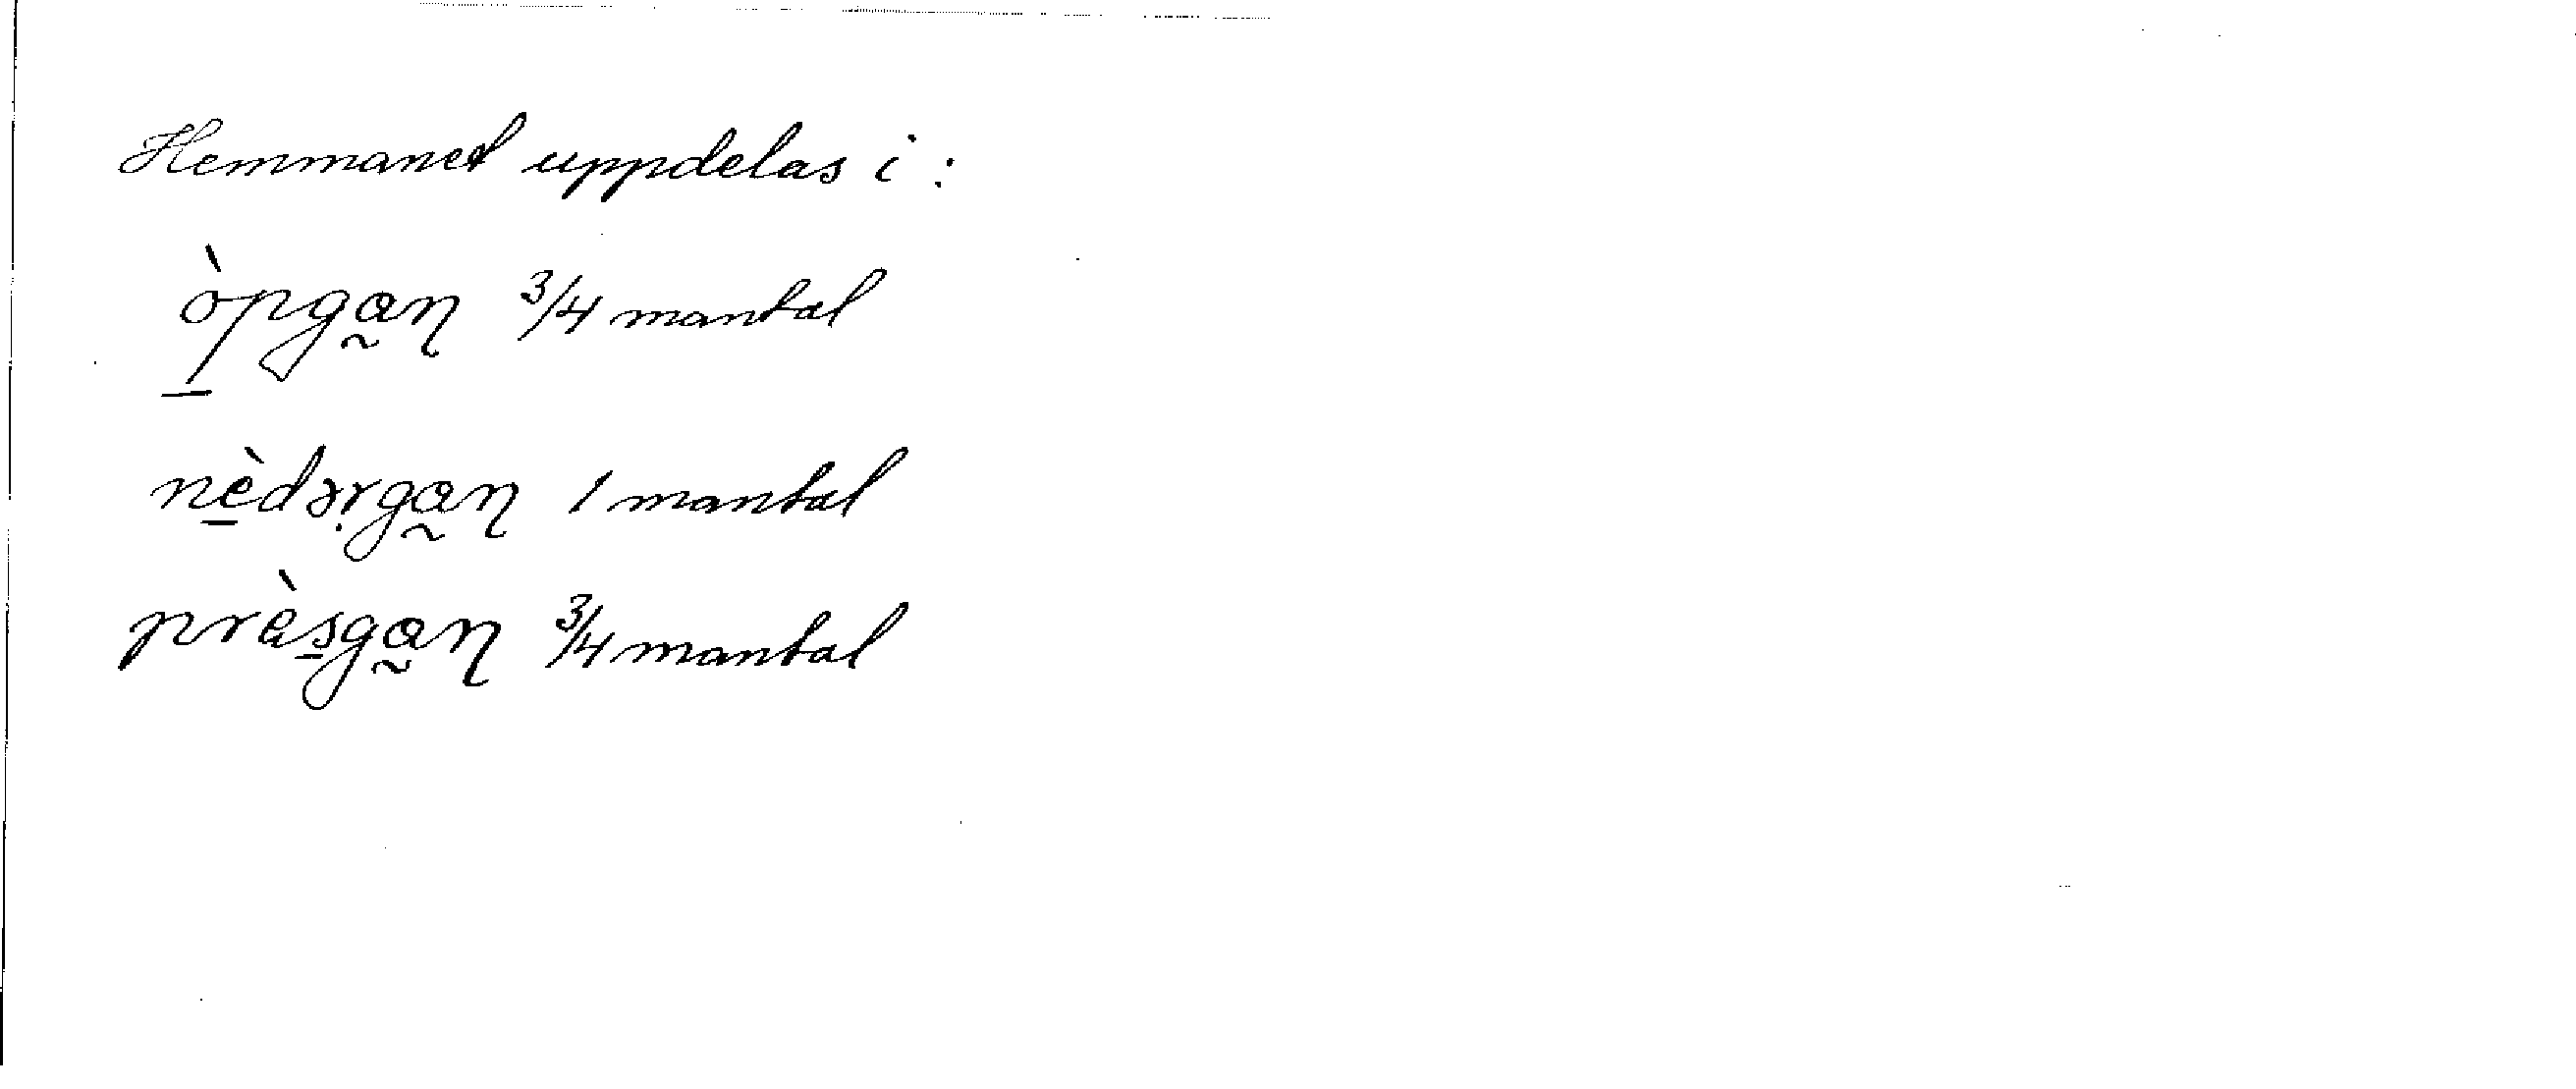 Hemmanet uppdelas i:
òp̱ga̰ɳ 3/4 mantal
nè̱dəṛga̰ɳ 1 mantal
pràs̱ga̰ɳ 3/4 mantal